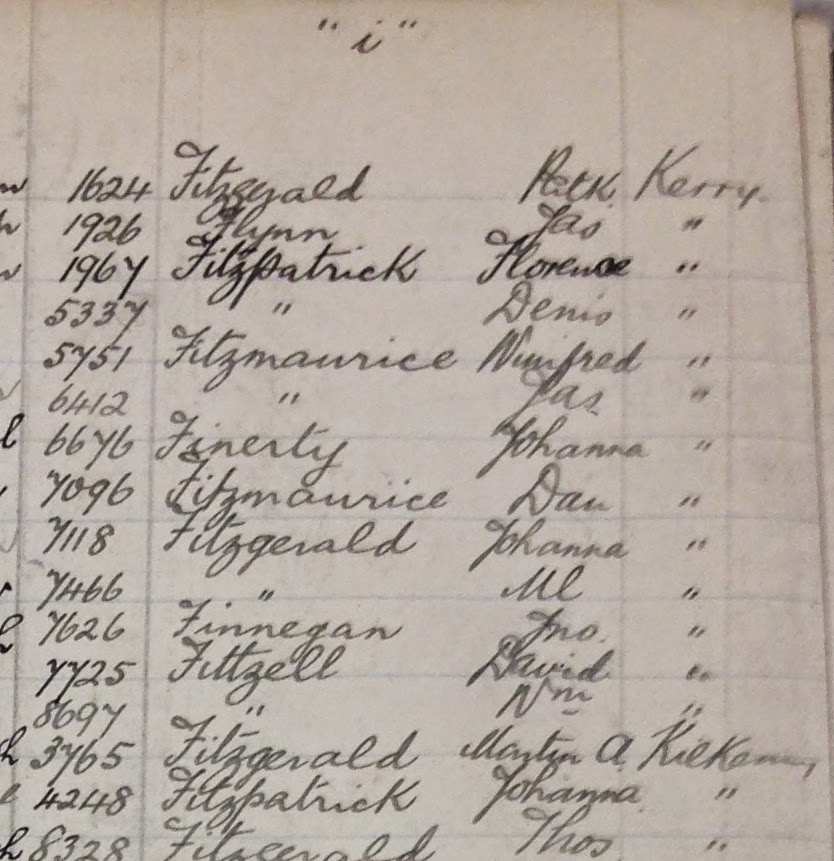 "i"
1624 Fitzgerald Patk Kerry
1926 Flynn Jas "
1967 Fitzpatrick Florence "
5337 " Denis "
5751 Fitzmaurice Winifred "
6412 " Jas "
6676 Finerty Johanna "
7096 Fitzmaurice Dan "
7118 Fitzgerald Johanna "
7466 " Ml "
7626 Finnegan Jno. "
7725 Fittzell David "
8697 " Wm "
3765 Fitzgerald Martin A. Kilkenny
4248 Fitzpatrick Johanna "
8328 Fitzgerald Thos "